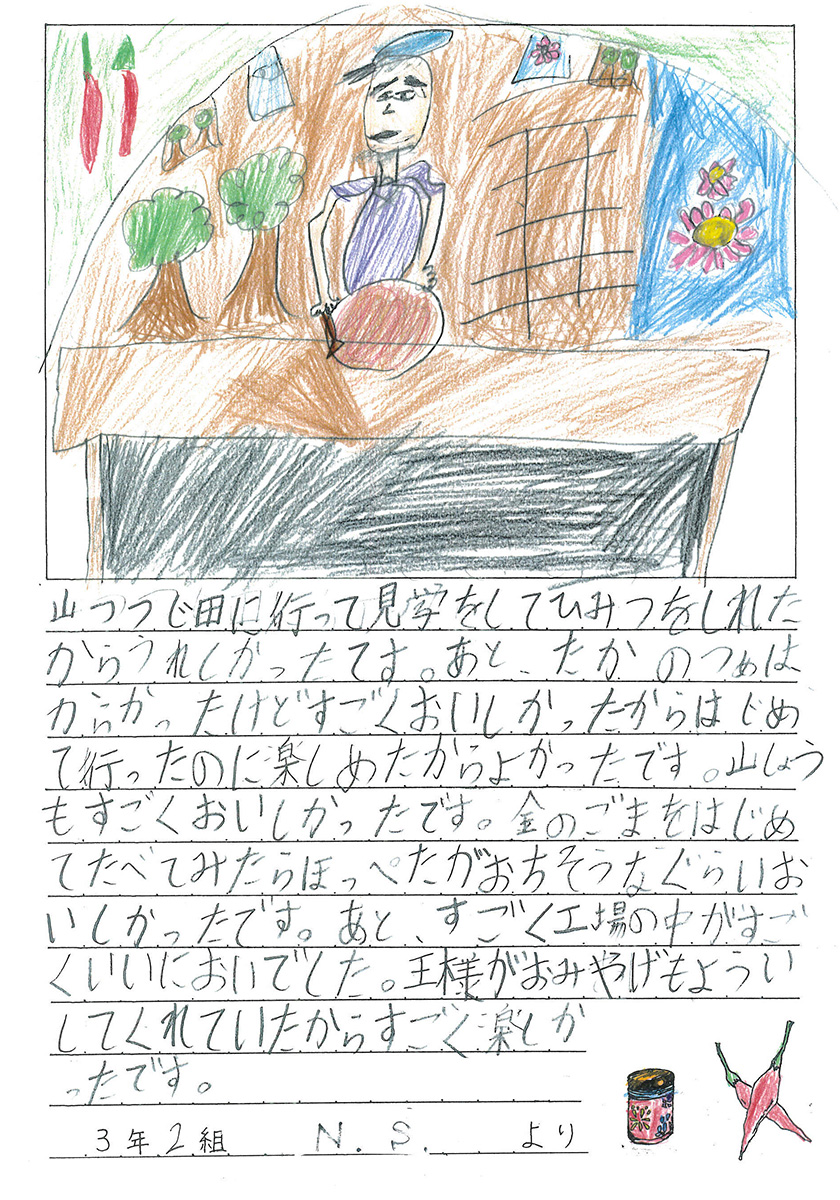 山つつじ田に行って見学をしてひみつをしれた
からうれしかったてす。あと、たかのつめは
からかったけどすごくおいしかったからはじめ
て行ったのに楽しめたからよかったです。山しょう
もすごくおいしかったです。金のごまをはじめ
てたべてみたらほっぺたがおちそうなぐらいお
いしかったです。あと、すごく工場の中がすご
くいいにおいでした。王様がおみやげもようい
してくれていたからすごく楽しか
ったです。
3年2組 N.S. より